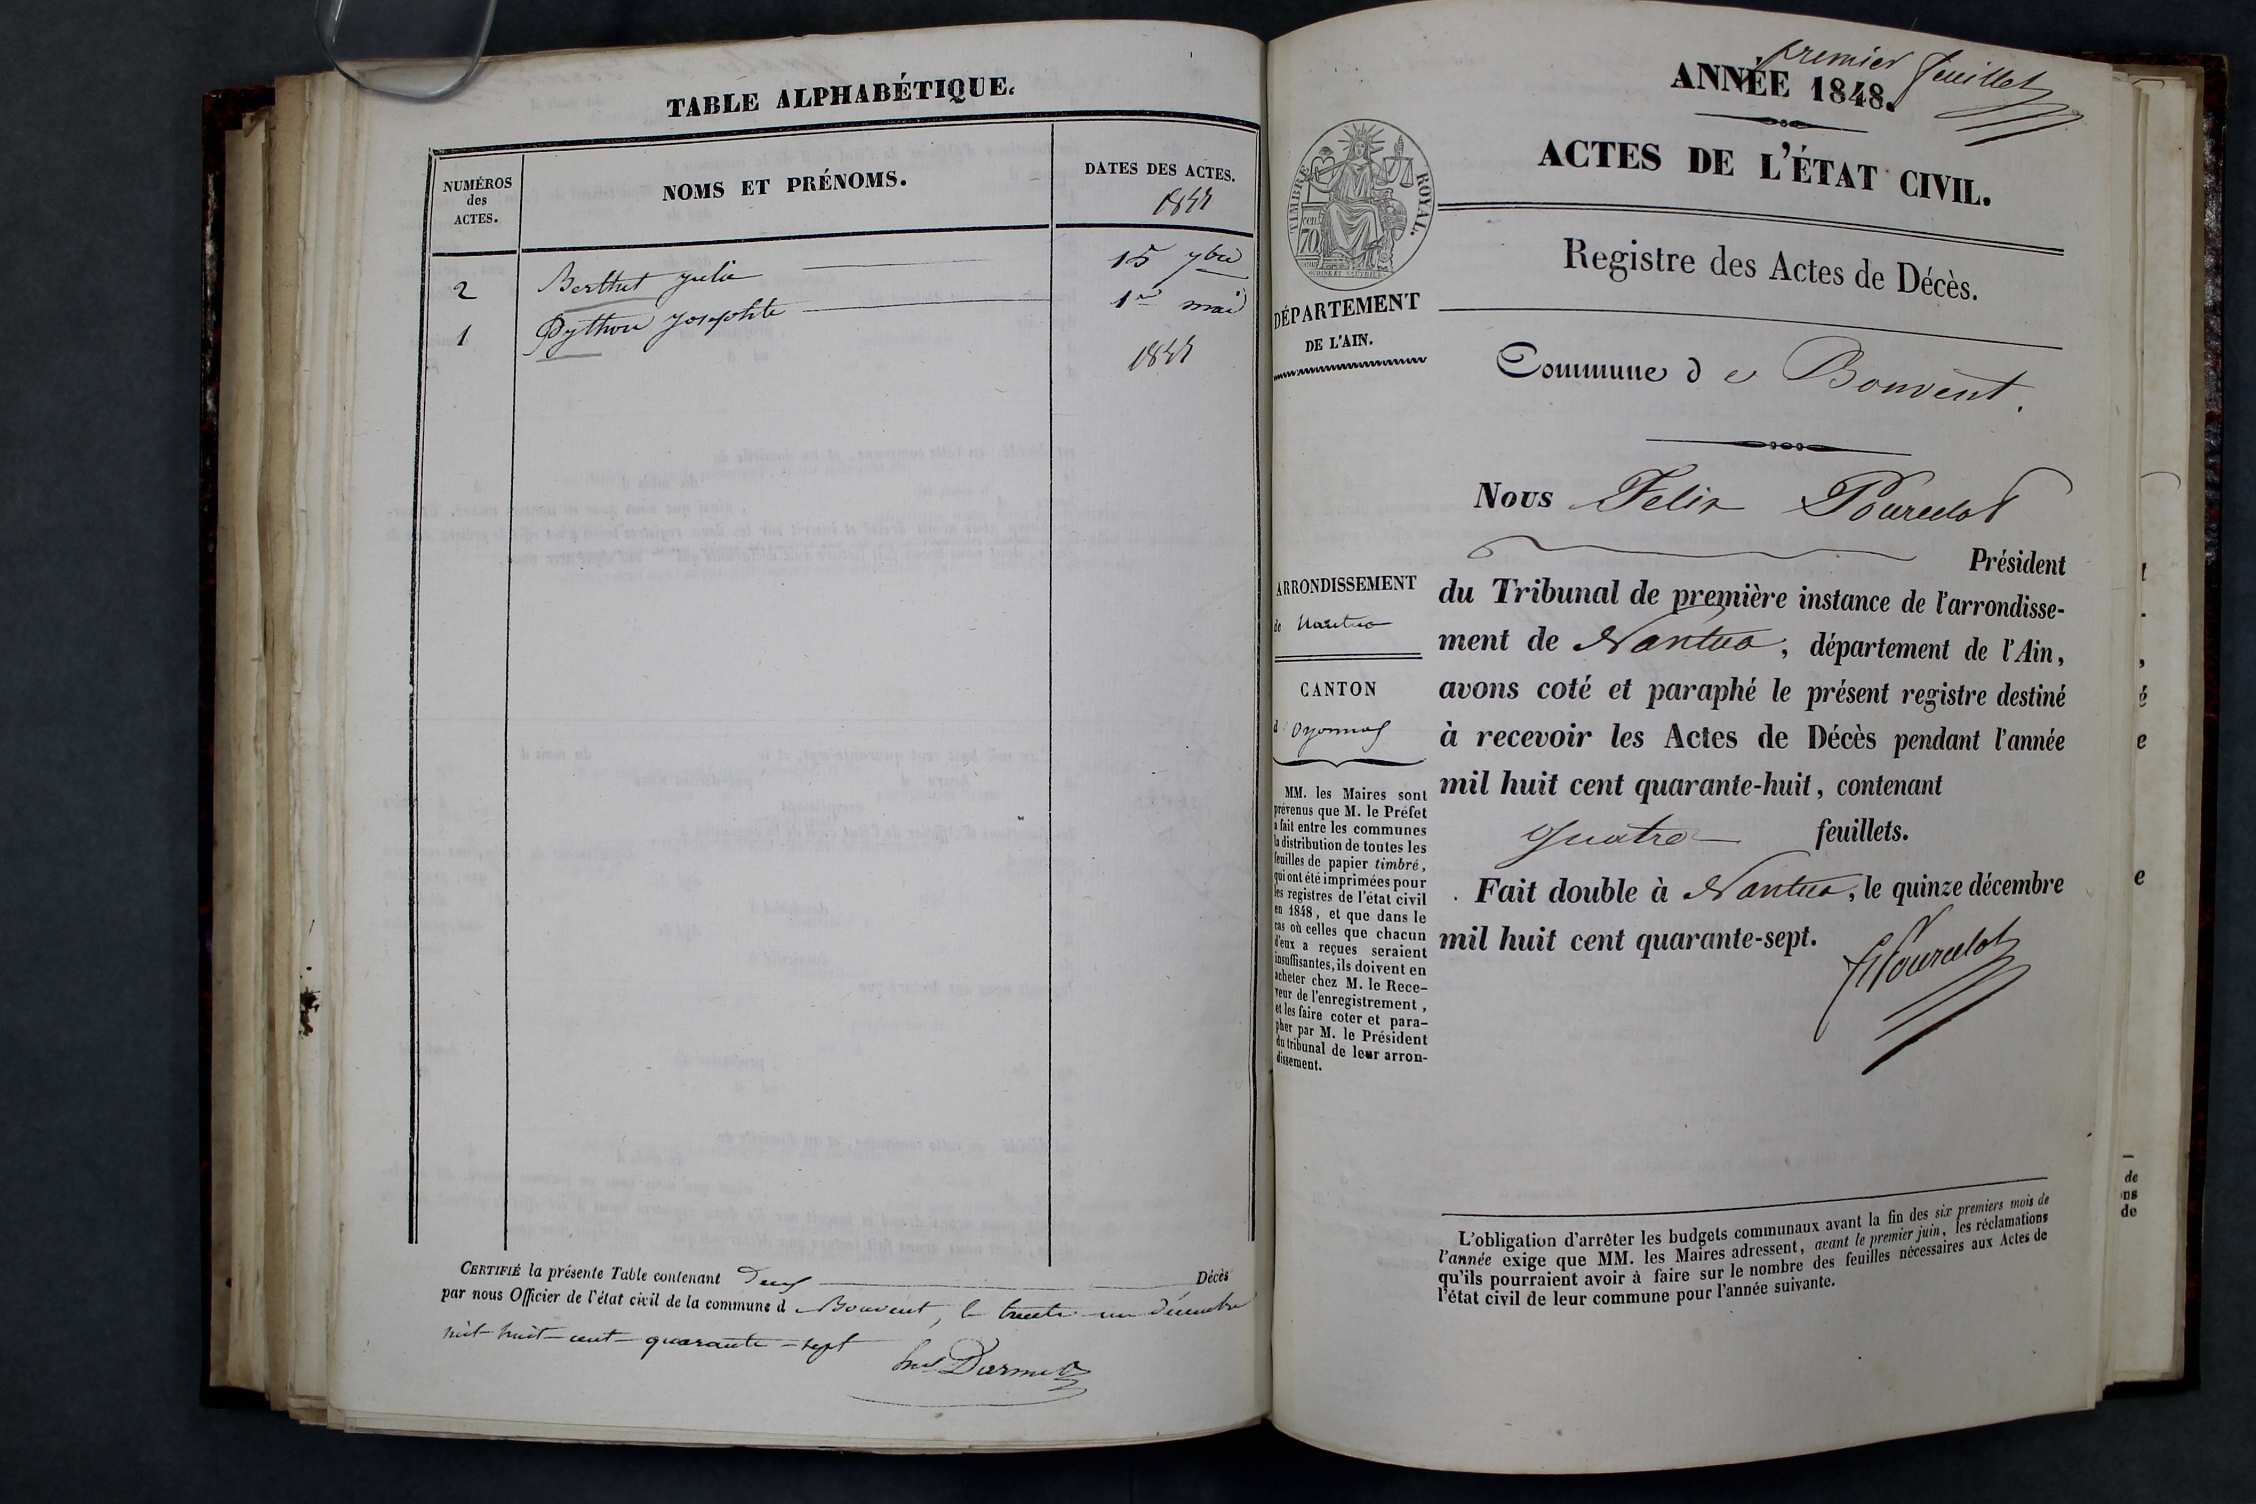 TABLE ALPHABÉTIQUE.
NUMÉROS
des
ACTES.
NOMS ET PRÉNOMS.
DATES DES ACTES.
1847
2 Berthet Julie 15 7bre
1 Python Josephte 1er mai
1847
CERTIFIÉ la présente Table contenant Deux Décès
par nous Officier de l'état civil de la commune d Bouvent, le trente-un décembre
mil-huit-cent-quarante-sept
premier feuillet
ANNÉE 1848.
ACTES DE L'ÉTAT CIVIL.
TIMBRE ROYAL.
cen.
70
Registre des Actes de Décès.
DÉPARTEMENT
DE L'AIN.
Commune de Bouvent.
Nous Felix Pourcelot
Président
du Tribunal de première instance de l'arrondisse-
ment de Nantua, département de l'Ain,
avons coté et paraphé le présent registre destiné
à recevoir les Actes de Décès pendant l'année
mil huit cent quarante-huit, contenant
quatre feuillets.
Fait double à Nantua, le quinze décembre
mil huit cent quarante-sept.
FPourcelot
ARRONDISSEMENT
de Nantua
CANTON
d'Oyonnax
MM. les Maires sont
prévenus que M. le Préfet
a fait entre les communes
la distribution de toutes les
feuilles de papier timbré,
qui ont été imprimées pour
les registres de l'état civil
en 1848, et que dans le
cas où celles que chacun
d'eux a reçues seraient
insuffisantes, ils doivent en
acheter chez M. le Rece-
veur de l'enregistrement,
et les faire coter et para-
pher par M. le Président
du tribunal de leur arron-
dissement.
L'obligation d'arrêter les budgets communaux avant la fin des six premiers mois de
l'année exige que MM. les Maires adressent, avant le premier juin, les réclamations
qu'ils pourraient avoir à faire sur le nombre des feuilles nécessaires aux Actes de
l'état civil de leur commune pour l'année suivante.